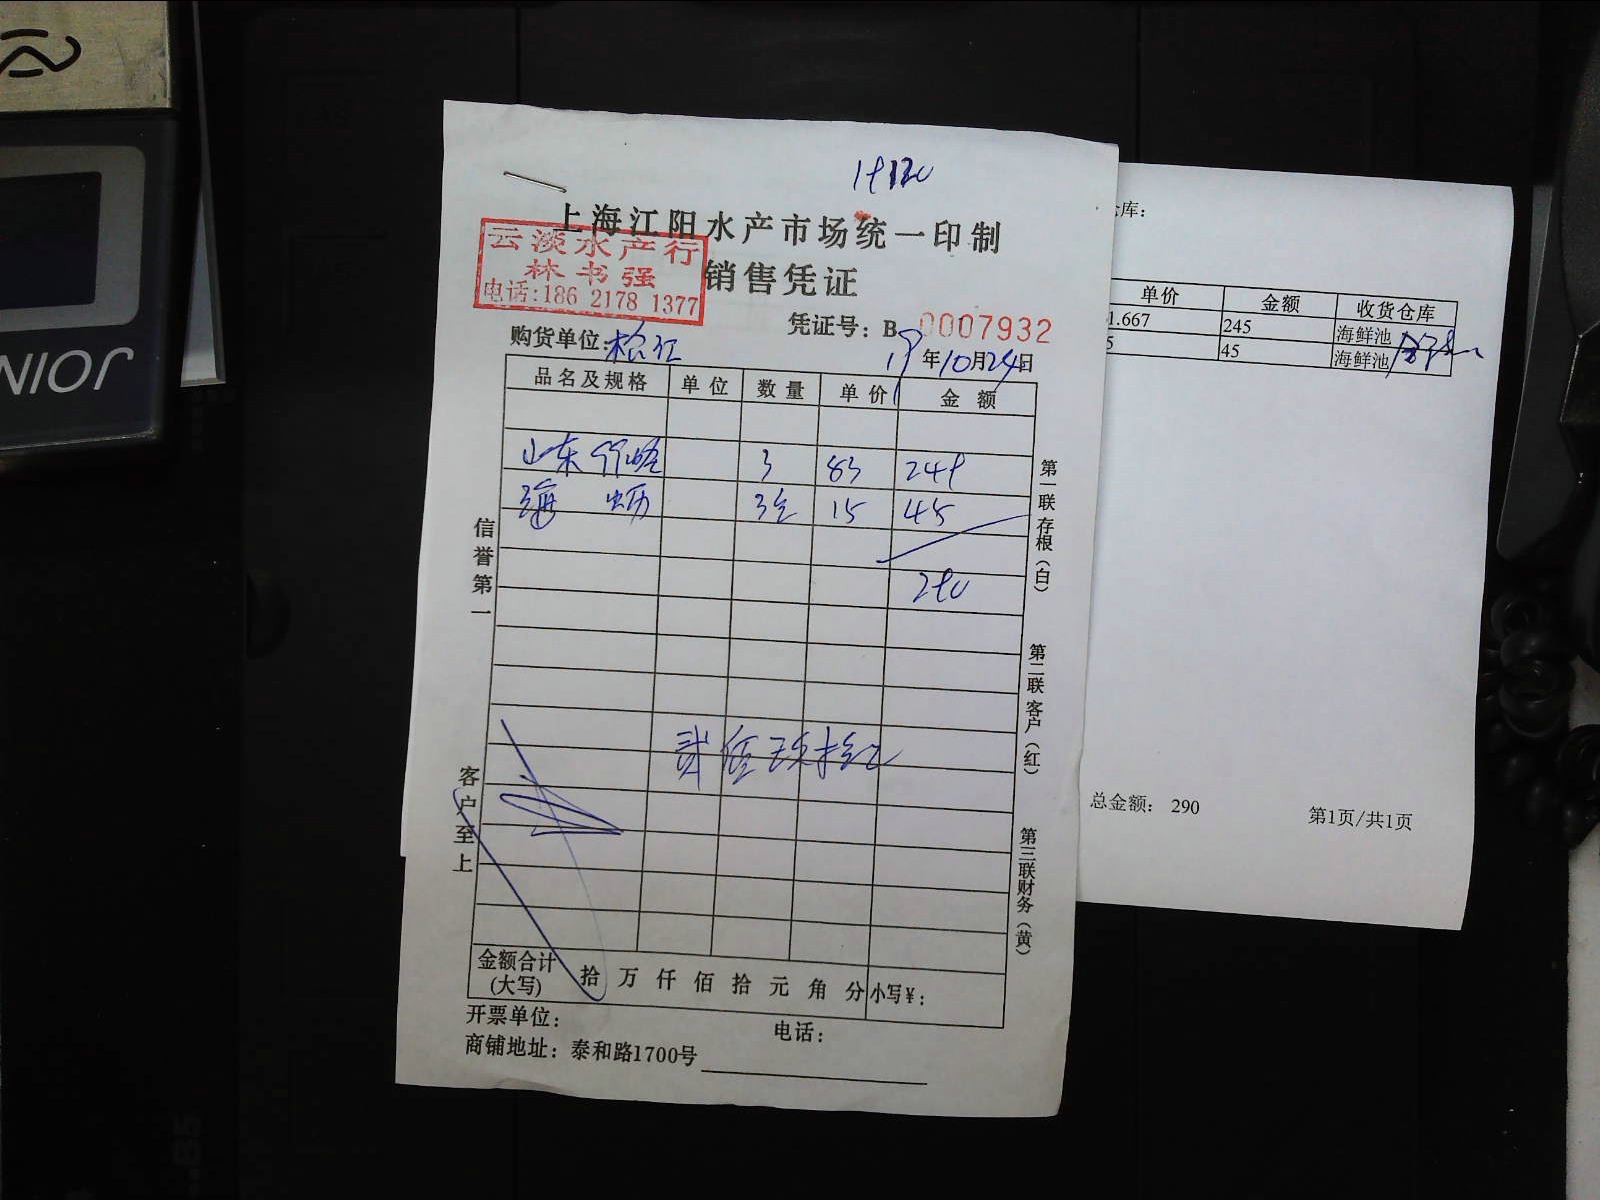 上海江阳水产市场统一印制
销售凭证
云淡水产行
林书强
电话:186 2178 1377
凭证号: B 0007932
购货单位: 松江
19年10月24日
品名及规格 单位 数量 单价 金额
山东 3 83
海蛎 3 15 45
290
贰佰玖拾元
金额合计(大写) 拾万仟佰拾元角分 小写¥:
开票单位: 电话:
商铺地址: 泰和路1700号
信誉第一
客户至上
第一联存根(白)
第二联客户(红)
第三联财务(黄)
库:
单价 金额 收货仓库
1.667 245 海鲜池
5 45 海鲜池
总金额: 290 第1页/共1页
JOIN